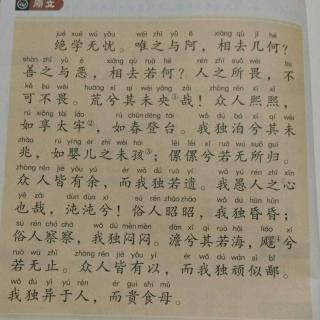 原文
jué xué wú yōu wéi zhī yǔ ē xiāng qù jǐ hé
绝学无忧。唯之与阿，相去几何？
shàn zhī yǔ è xiāng qù ruò hé rén zhī suǒ wèi bù
善之与恶，相去若何？人之所畏，不
kě bú wèi huāng xī qí wèi yāng zāi zhòng rén xī xī
可不畏。荒兮其未央①哉！众人熙熙，
rú xiǎng tài láo rú chūn dēng tái wǒ dú bó xī qí wèi
如享太牢②，如春登台。我独泊兮其未
zhào rú yīng ér zhī wèi hái lěi lěi xī ruò wú suǒ guī
兆，如婴儿之未孩③；儽儽兮若无所归。
zhòng rén jiē yǒu yú ér wǒ dú ruò yí wǒ yú rén zhī xīn
众人皆有余，而我独若遗。我愚人之心
yě zāi dùn dùn xī sú rén zhāo zhāo wǒ dú hūn hūn
也哉，沌沌兮！俗人昭昭，我独昏昏；
sú rén chá chá wǒ dú mèn mèn dàn xī qí ruò hǎi liù xī
俗人察察，我独闷闷。澹兮其若海，飂④兮
ruò wú zhǐ zhòng rén jiē yǒu yǐ ér wǒ dú wán sì bǐ
若无止。众人皆有以，而我独顽似鄙。
wǒ dú yì yú rén ér guì shí mǔ
我独异于人，而贵食母。